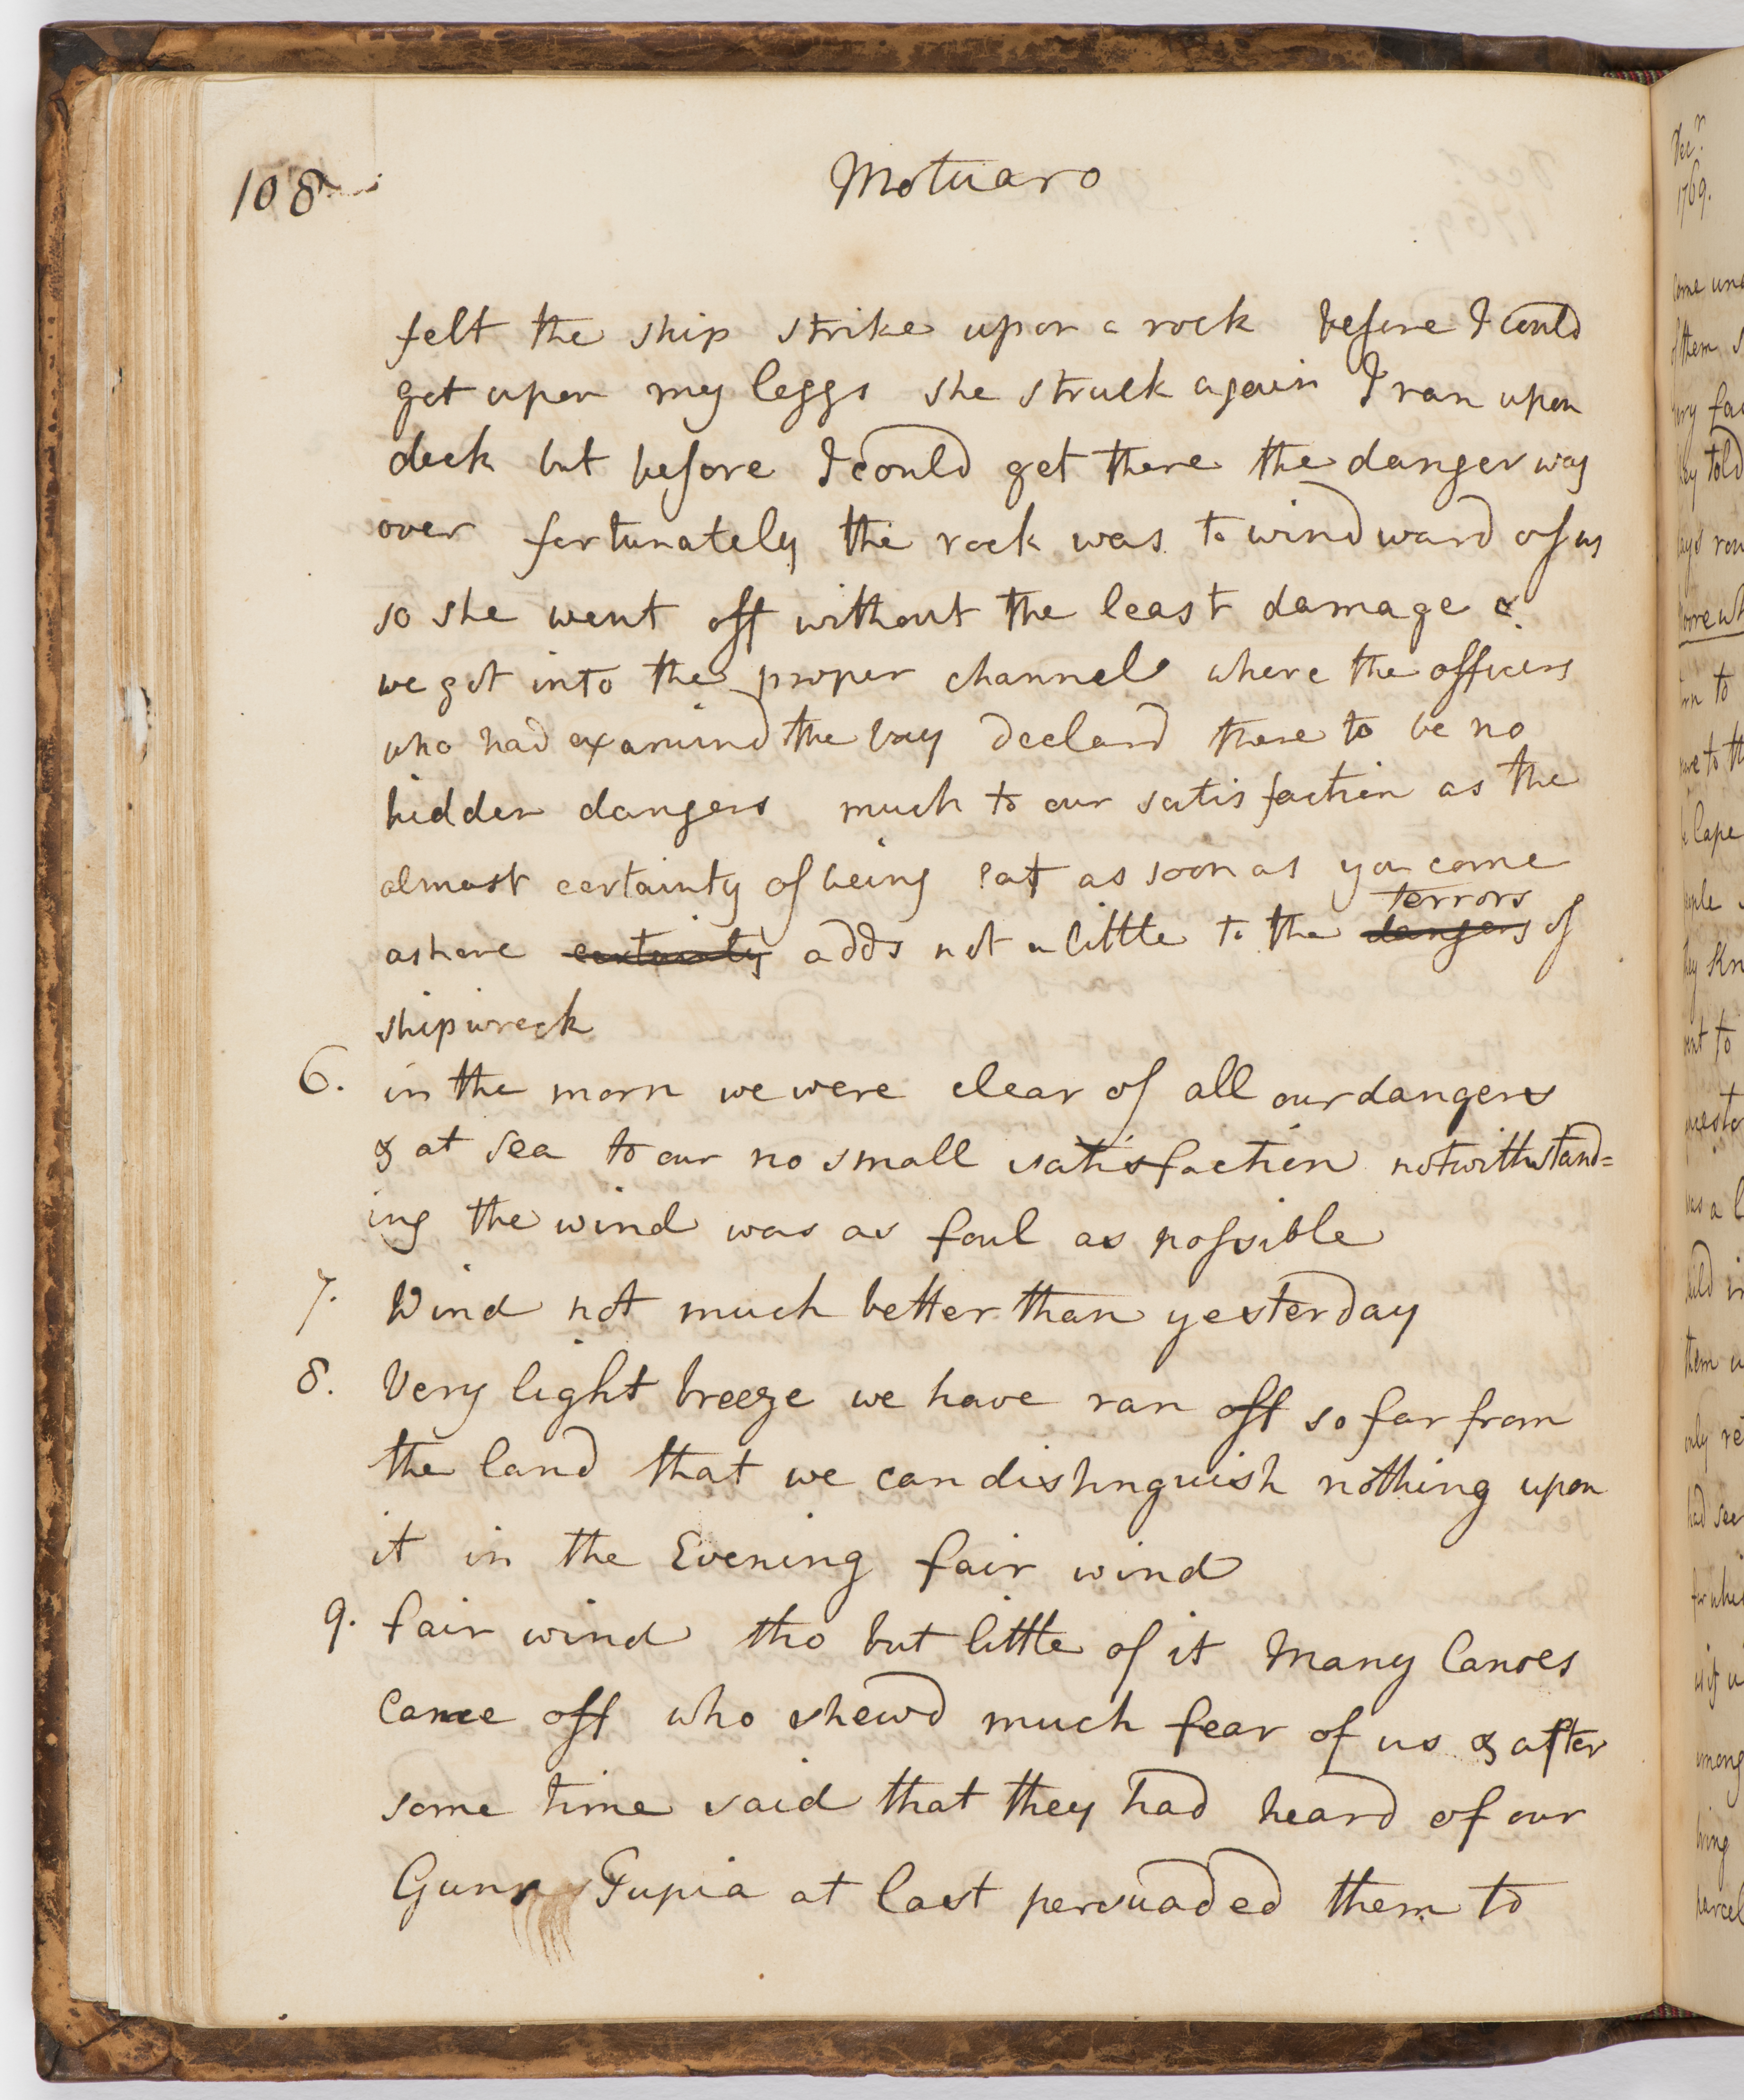 108
Motuaro
felt the ship strike upon a rock before I could
get upon my leggs she struck again I ran upon
deck but before I could get there the danger was
over fortunately the rock was to windward of us
so she went off without the least damage &
we got into the proper channel where the officers
who had examind the bay declard there to be no
hidden dangers much to our satisfaction as the
almost certainty of being eat as soon as you come
terrors
ashore certainty adds not a little to the dangers of
shipwreck
6. in the morn we were clear of all our dangers
& at sea to our no small satisfaction notwithstand=
ing the wind was as foul as possible
7. Wind not much better than yesterday
8. Very light breeze we have ran off so far from
the land that we can distinguish nothing upon
it in the Evening fair wind
9. fair wind tho but little of it Many Canoes
Came off who shewd much fear of us & after
some time said that they had heard of our
Guns Tupia at last persuaded them to
Decr.
1769.
told
Cape